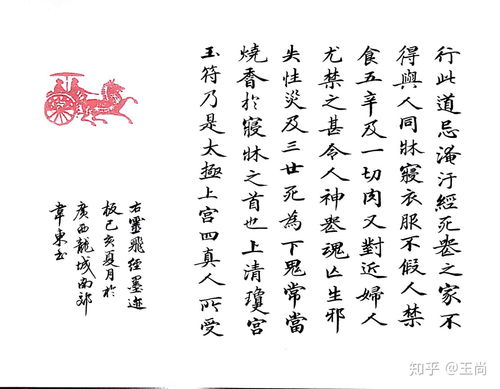 行此道忌淹汙經死喪之家不
得與人同牀寢衣服不假人禁
食五辛及一切肉又對近婦人
尤禁之甚令人神喪魂亡生邪
失性災及三世死為下鬼常當
燒香於寢牀之首也上清瓊宮
玉符乃是太極上宮四真人所受
右靈飛經墨迹
板己亥夏月於
廣西龍城南郊
韋東書
知乎 @王尚